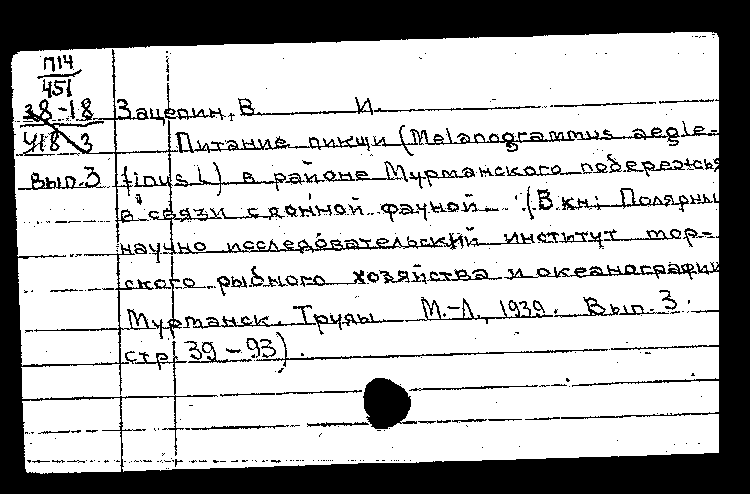 П14
451
38-18 Зацепин, В. И.
418 3 Питание пикши (Melanogrammus aegle-
Вып.3 finus L) в районе Мурманского побережья
в связи с донной фауной. (В кн: Полярны
научно исследовательский институт мор-
ского рыбного хозяйства и океанографии
Мурманск. Труды М.-Л., 1939. Вып. 3.
стр. 39-93).